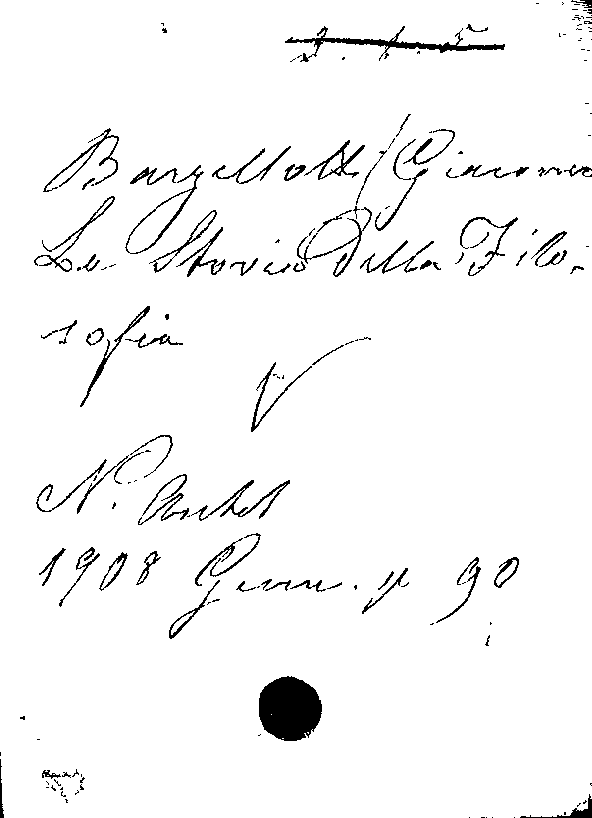 Barzellotti Giacomo
La Storia della Filo-
sofia
N. Antol
1908 Genn. p 90